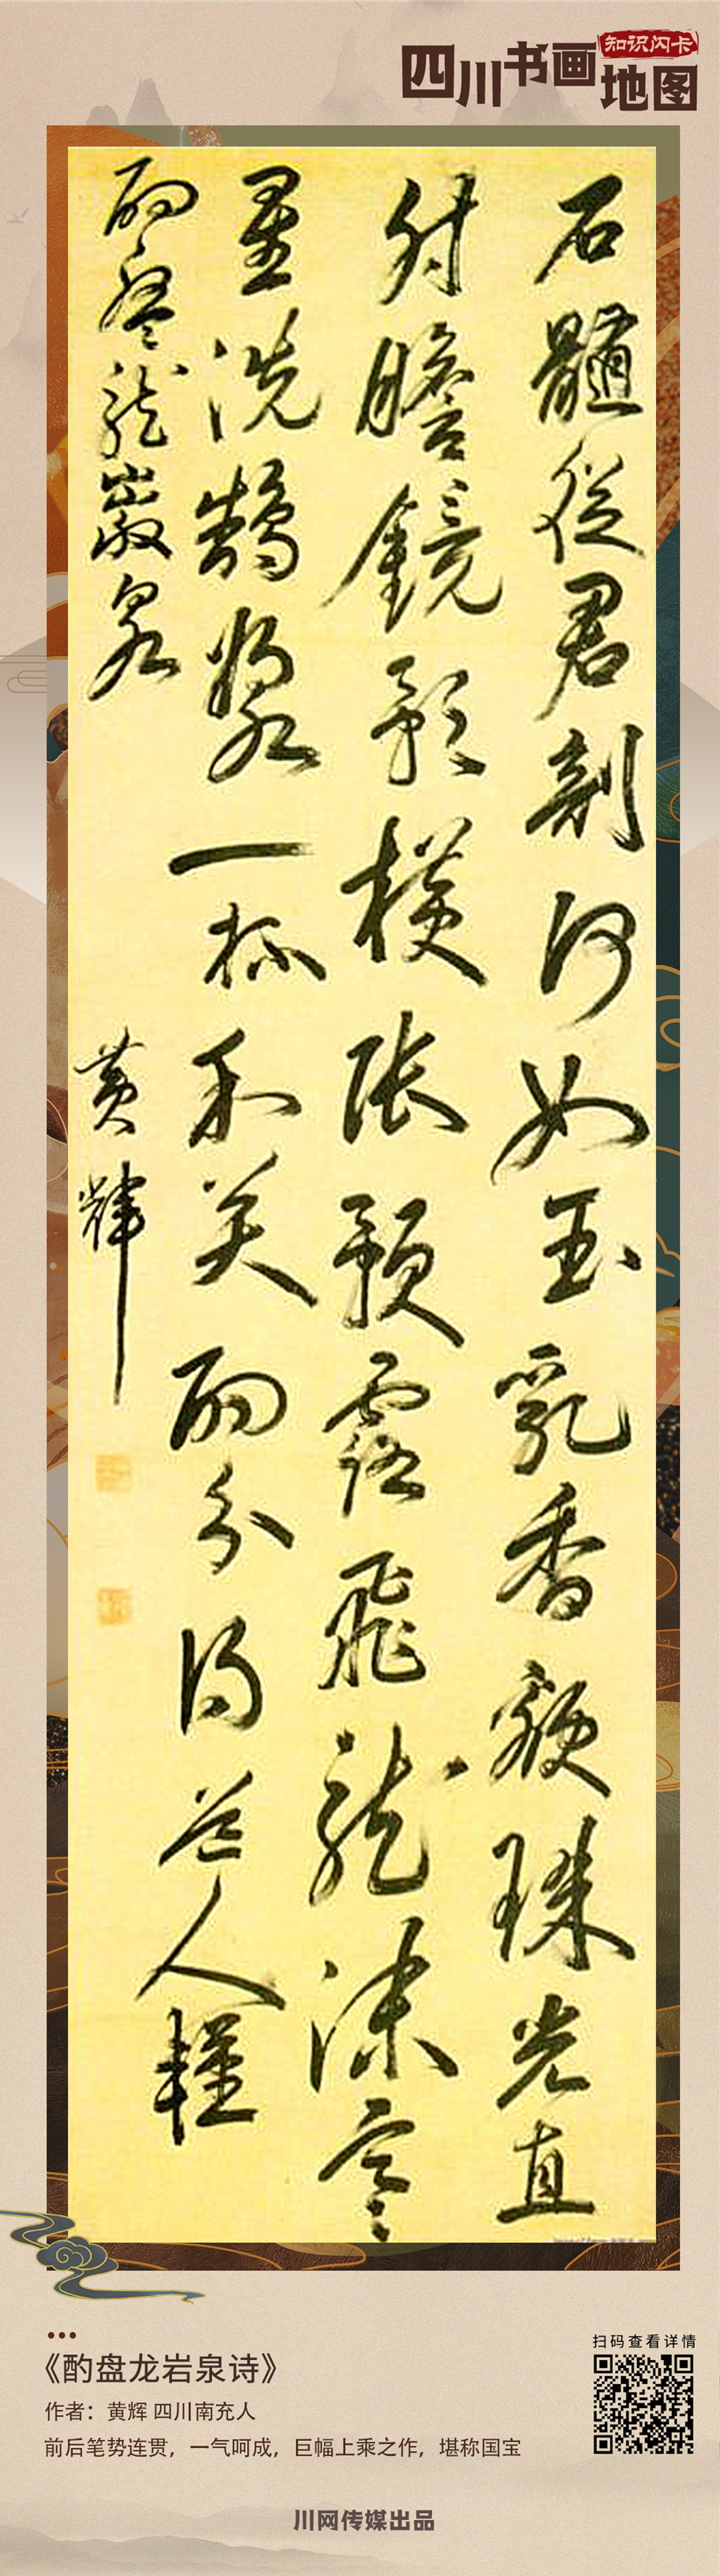 四川书画地图
知识闪卡
石髓從君剖何如玉乳香頷珠光直
射膽鏡影橫張預露飛龍沫寒
星洗鵠漿一杯和酌分得人糧
酌盤龍巖泉
黃輝
《酌盘龙岩泉诗》
作者：黄辉 四川南充人
前后笔势连贯，一气呵成，巨幅上乘之作，堪称国宝
扫码查看详情
川网传媒出品